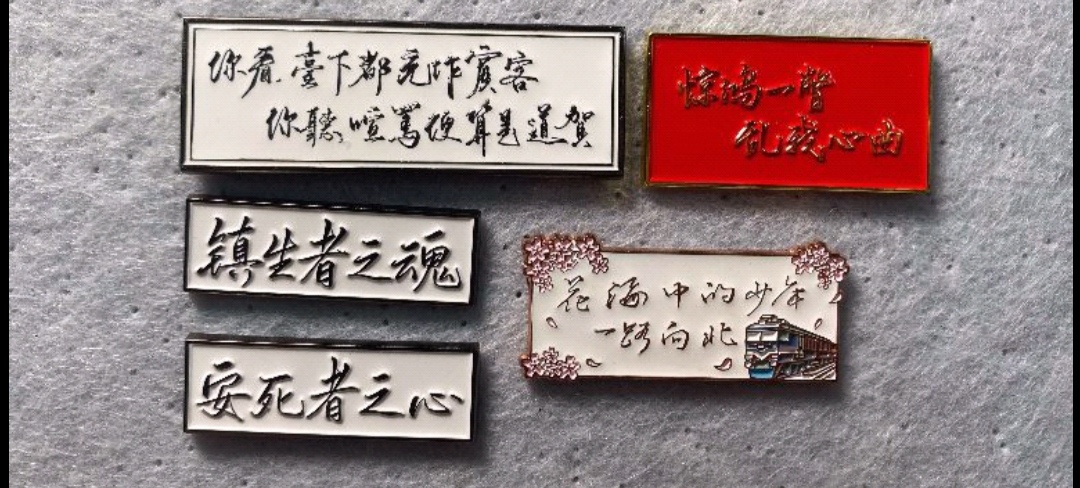 你看臺下都充作賓客
你聽喧罵便算是道賀
惊鸿一瞥
乱我心曲
镇生者之魂
安死者之心
花海中的少年
一路向北